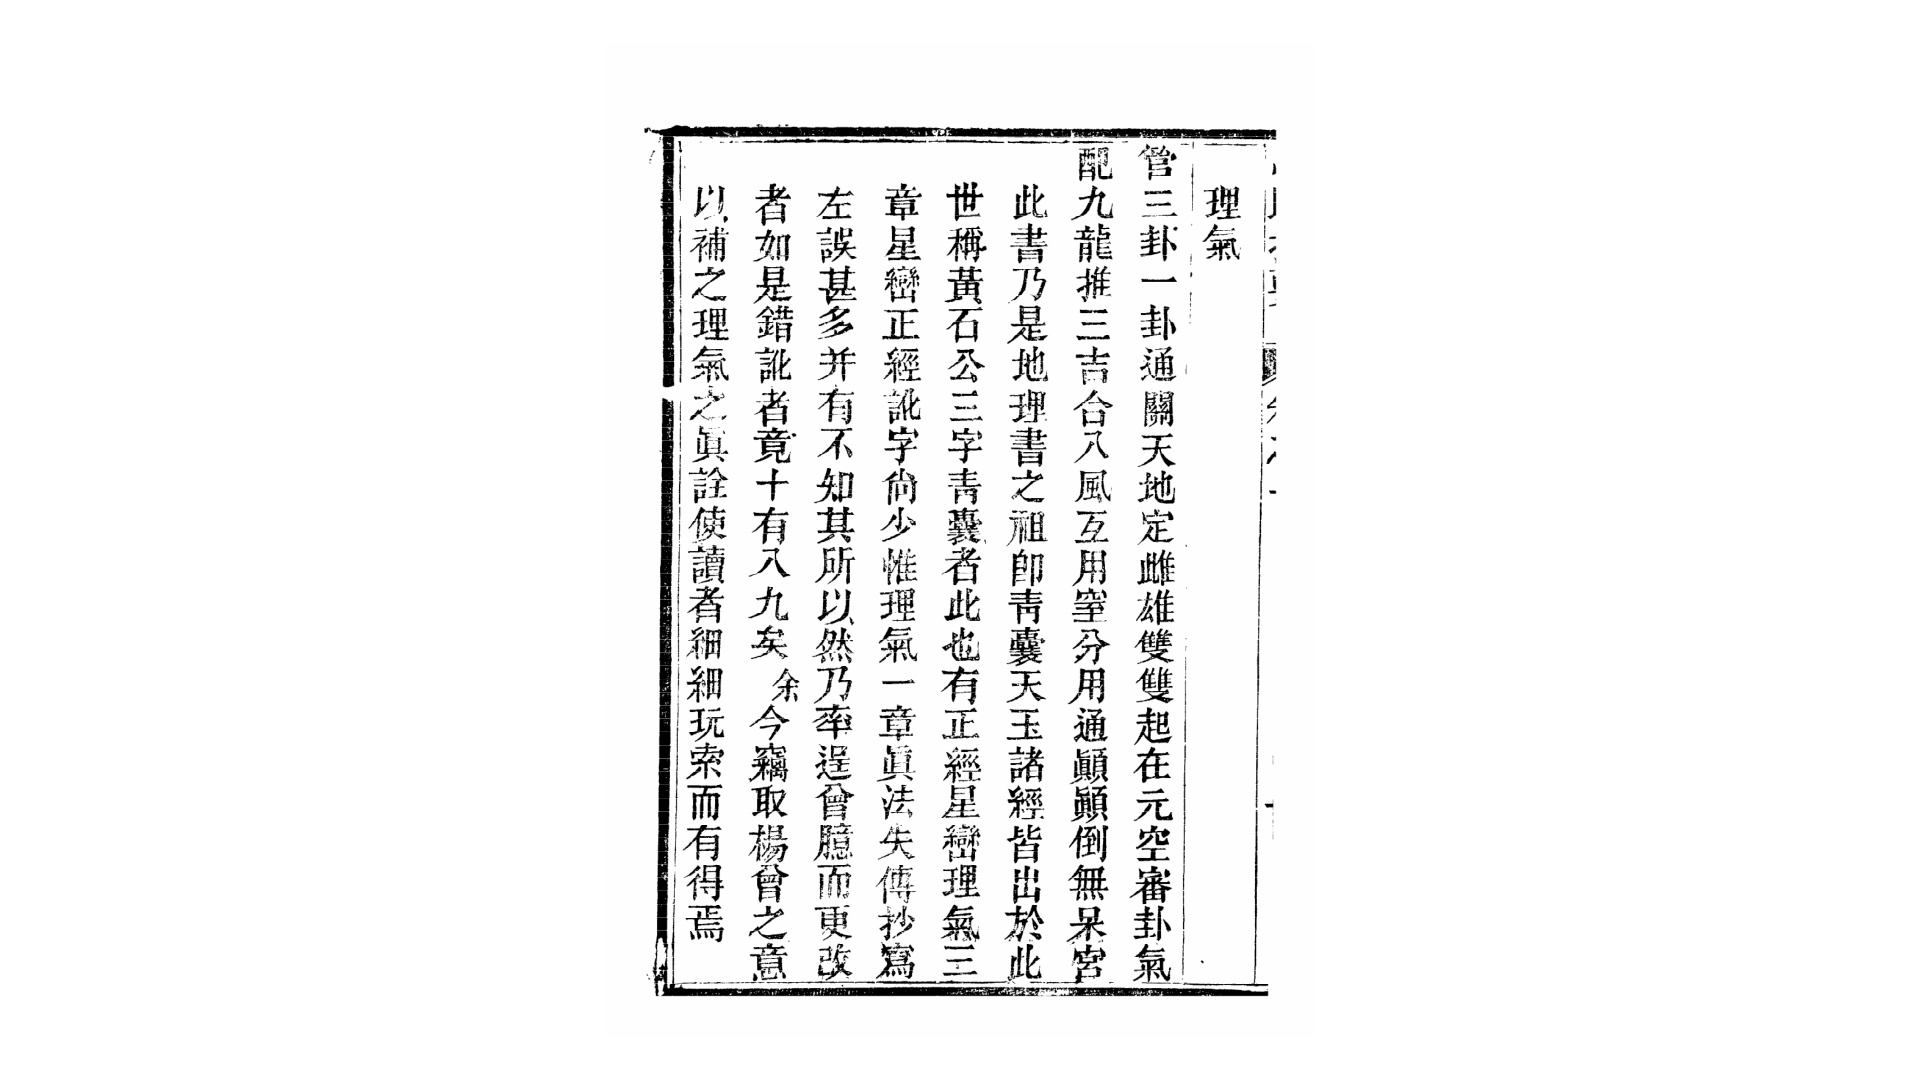 理氣
管三卦一卦通關天地定雌雄雙雙起在元空審卦氣
配九龍推三吉合八風互用窒分用通顚顚倒無呆宮
此書乃是地理書之祖師靑囊天玉諸經皆出於此
世稱黃石公三字靑囊者此也有正經星巒理氣三
章星巒正經訛字尙少惟理氣一章眞法失傳抄寫
左誤甚多并有不知其所以然乃率逞曾臆而更改
者如是錯訛者竟十有八九矣余今竊取楊曾之意
以補之理氣之眞詮使讀者細細玩索而有得焉